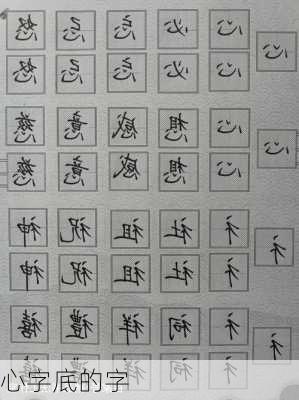 心
心 必 忘 忌 怒
心 必 忘 忌 怒
心
心 想 感 意 慈
心 想 感 意 慈
礻
礻 社 祖 祝 神
礻 社 祖 祝 神
礻
礻 祠 祥 禮 禧
礻 祠 祥 禮 禧
心字底的字